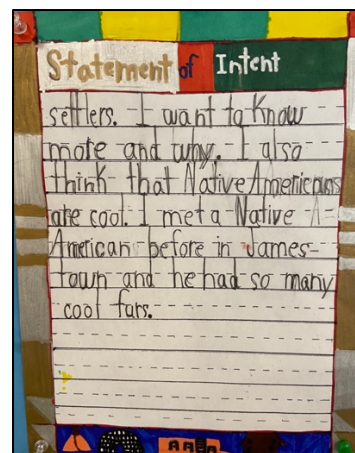 Statement of Intent
settlers. I want to know
more and why. I also
think that Native Americans
are cool. I met a Native A-
American before in James-
town and he had so many
cool furs.